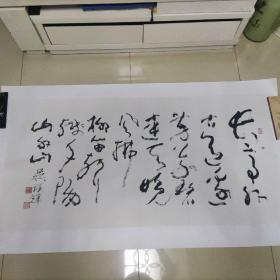 长亭外
古道邊
芳草碧
連天晚
风拂
柳笛声
殘夕陽
山外山